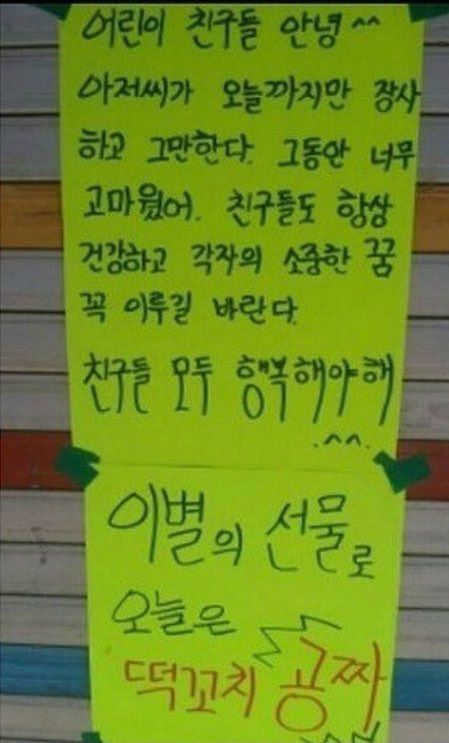 어린이 친구들 안녕 ^^
아저씨가 오늘까지만 장사
하고 그만한다. 그동안 너무
고마웠어. 친구들도 항상
건강하고 각자의 소중한 꿈
꼭 이루길 바란다.
친구들 모두 행복해야해
.^^.
이별의 선물로
오늘은
떡꼬치 공짜